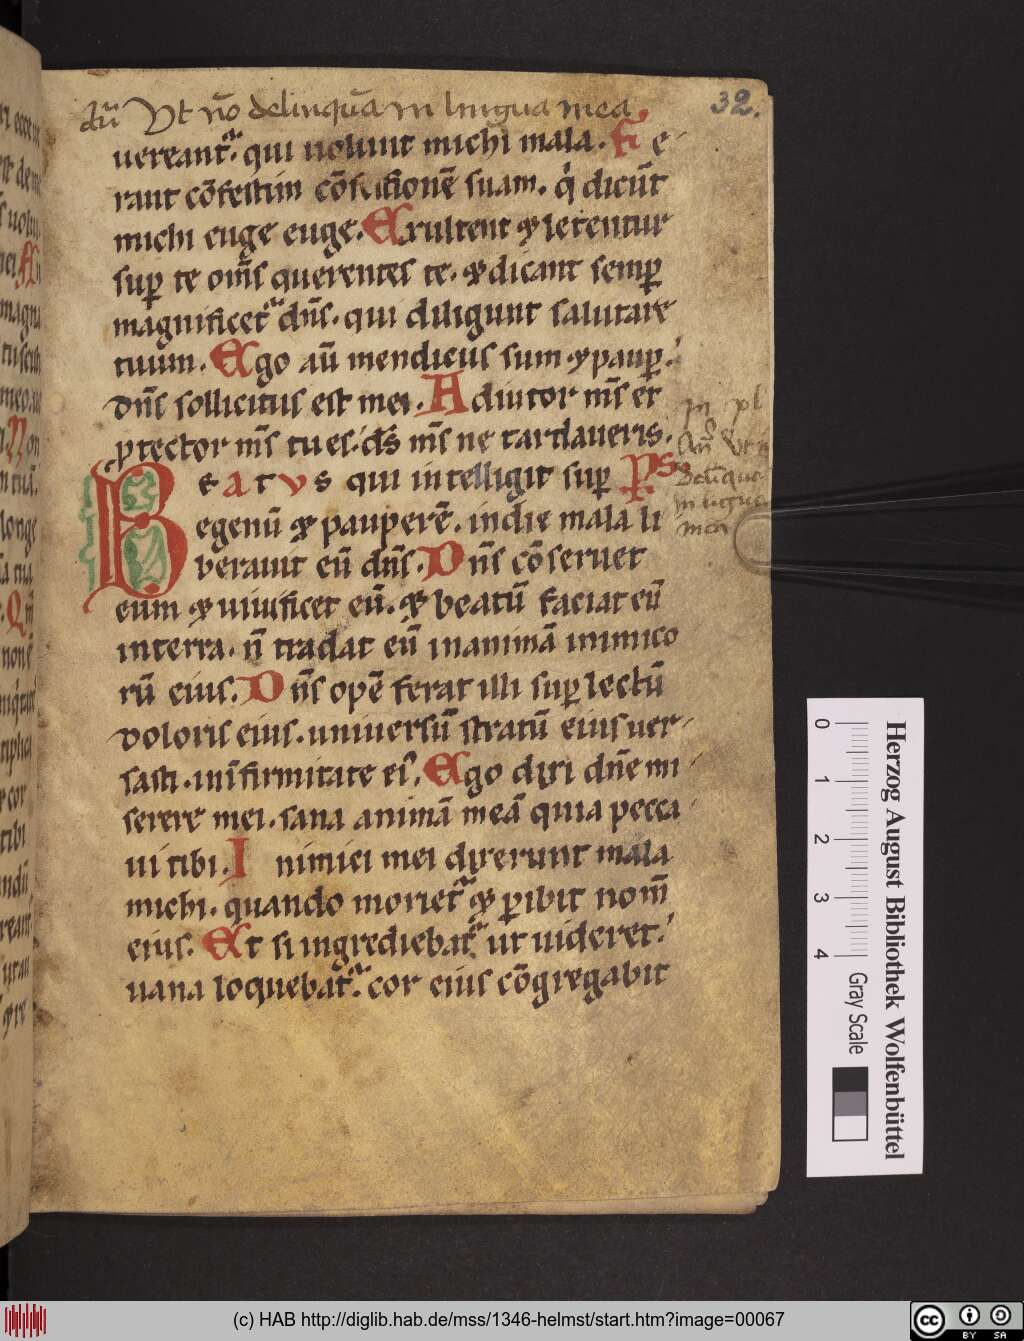 añ Vt nō delinquā in lingua mea 32.
uereant᷑. qui uolunt michi mala. Fe
rant cōfestim cōfusionē suam. q̇ dicūt
michi euge euge. Exultent ⁊ letentur
sup̱ te om̄s querentes te. ⁊ dicant semp̱
magnificet᷑ dn̄s. qui diligunt salutare
tuum. Ego aū mendicus sum ⁊ paup̱.
dn̄s sollicitus est mei. Adiutor m̄s et
p̱tector m̄s tu es. ds̄ m̄s ne tardaueris.
Beatus qui intelligit sup̱ Ps
egenū ⁊ pauperē. in die mala li
berauit eū dn̄s. Dn̄s cōseruet
eum ⁊ uiuificet eū. ⁊ beatū faciat eū
in terra. n̄ tradat eū in animā inimico
rū eius. Dn̄s opē ferat illi sup̱ lectū
doloris eius. uniuersū stratū eius uer
sasti. in infirmitate ei᷒. Ego dixi dn̄e mi
serere mei. sana animā meā quia pecca
ui tibi. Inimici mei dixerunt mala
michi. quando moriet᷑ ⁊ p̱ibit nom̄
eius. Et si ingrediebat᷑ ut uideret.
uana loquebat᷑. cor eius cōgregabit
añ Vt n
delīqua
in ligua
mea
Herzog August Bibliothek Wolfenbüttel
0 1 2 3 4 Gray Scale
(c) HAB http://diglib.hab.de/mss/1346-helmst/start.htm?image=00067
cc BY SA